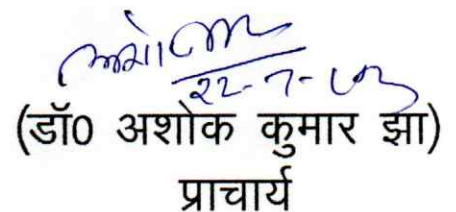 22-7-
(डॉ0 अशोक कुमार झा)
प्राचार्य